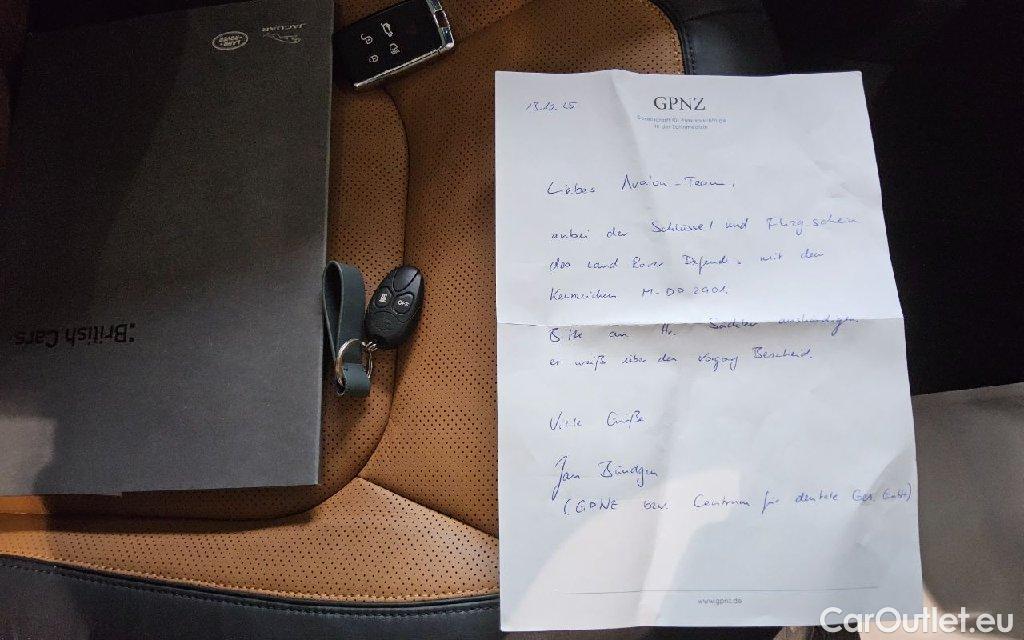 JAGUAR
LAND ROVER
:British Cars
OFF
13.12.25
GPNZ
Liebes Avalon-Team,
anbei der Schlüssel und
des Land Rover mit dem
Kennzeichen M-DD 2901.
Bitte an Hr. aushändigen,
er weiß über den Vorgang Bescheid.
Viele Grüße
Jan Bündgen
(GPNZ bzw. Centrum für dentale Ges. GmbH)
www.gpnz.de
CarOutlet.eu